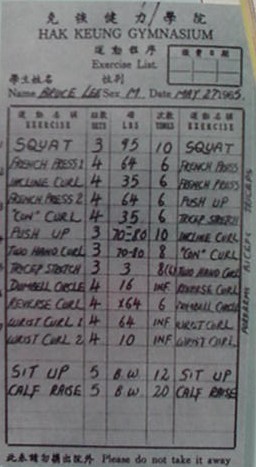 克強健力學院
HAK KEUNG GYMNASIUM
運動程序
Exercise List.
繳費日期
學生姓名 性別
Name BRUCE LEE Sex M. Date MAY 27 1965.
運動名稱 組數 磅 次數 運動名稱
EXERCISE SETS LBS TIMES EXERCISE
SQUAT 3 95 10 SQUAT
FRENCH PRESS 1 4 64 6 FRENCH PRESS
INCLINE CURL 4 35 6 FRENCH PRESS
FRENCH PRESS 2 4 64 6 PUSH UP
"CON" CURL 4 35 6 TRICEP STRETCH
PUSH UP 3 70-80 10 INCLINE CURL
TWO HAND CURL 3 70-80 8 "CON" CURL
TRICEP STRETCH 3 3 TWO HAND CURL
DUMBELL CIRCLE 4 16 INF REVERSE CURL
REVERSE CURL 4 64 6 DUMBELL CIRCLE
WRIST CURL 1 4 64 INF WRIST CURL
WRIST CURL 2 4 10 INF WRIST CURL
SIT UP 5 B.W. 12 SIT UP
CALF RAISE 5 B.W. 20 CALF RAISE
FOREARM BICEPS TRICEPS
此表請勿攜出院外 Please do not take it away